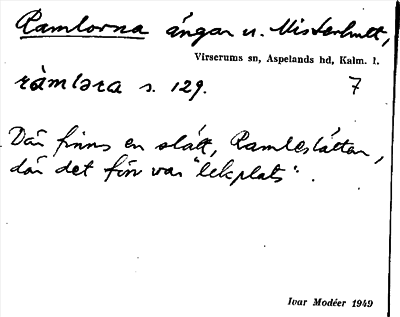 Ramlorna ängar u. Misterhult,
Virserums sn, Aspelands hd, Kalm. l.
ràmləra s. 129. 7
Där finns en slått, Ramleslåttan,
där det förr var "lekplats".
Ivar Modéer 1949